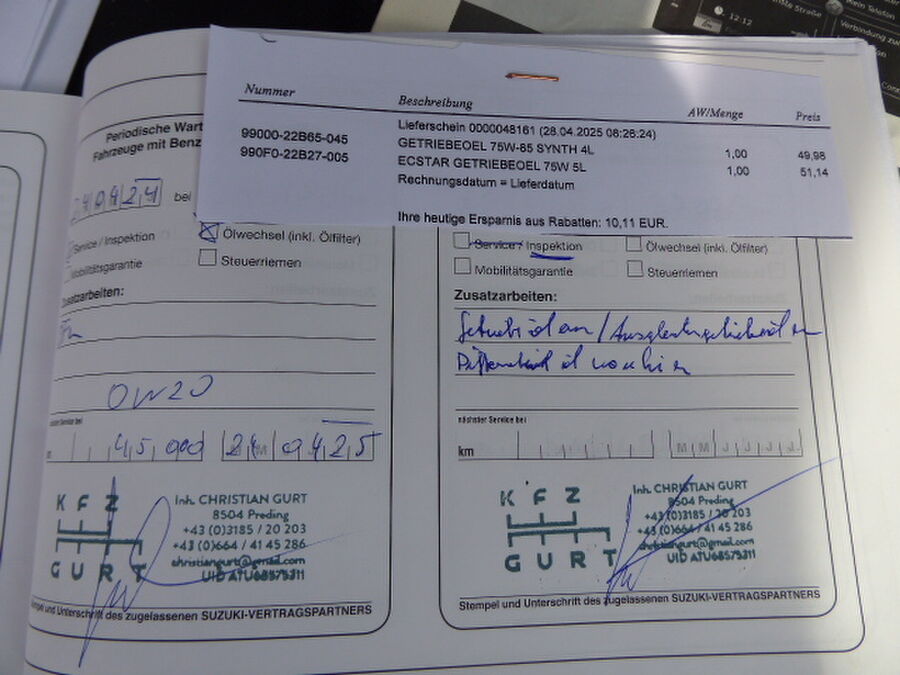 nste Straße
Kein Telefon
12:12
Verbindung zu
Nummer Beschreibung AW/Menge Preis
Lieferschein 0000048161 (28.04.2025 08:26:24)
99000-22B65-045 GETRIEBEOEL 75W-85 SYNTH 4L 1,00 49,98
990F0-22B27-005 ECSTAR GETRIEBEOEL 75W 5L 1,00 51,14
Rechnungsdatum = Lieferdatum
Ihre heutige Ersparnis aus Rabatten: 10,11 EUR.
Periodische Wart
Fahrzeuge mit Benz
240424 bei
Service / Inspektion Ölwechsel (inkl. Ölfilter)
Mobilitätsgarantie Steuerriemen
Zusatzarbeiten:
0W20
nächster Service bei
45000 24 0425
KFZ
GURT
Inh. CHRISTIAN GURT
8504 Preding
+43 (0)3185 / 20 203
+43 (0)664 / 41 45 286
christiangurt@gmail.com
UID ATU68579311
Stempel und Unterschrift des zugelassenen SUZUKI-VERTRAGSPARTNERS
Service / Inspektion Ölwechsel (inkl. Ölfilter)
Mobilitätsgarantie Steuerriemen
Zusatzarbeiten:
nächster Service bei
km M M J J J J
KFZ
GURT
Inh. CHRISTIAN GURT
8504 Preding
+43 (0)3185 / 20 203
+43 (0)664 / 41 45 286
christiangurt@gmail.com
UID ATU68579311
Stempel und Unterschrift des zugelassenen SUZUKI-VERTRAGSPARTNERS